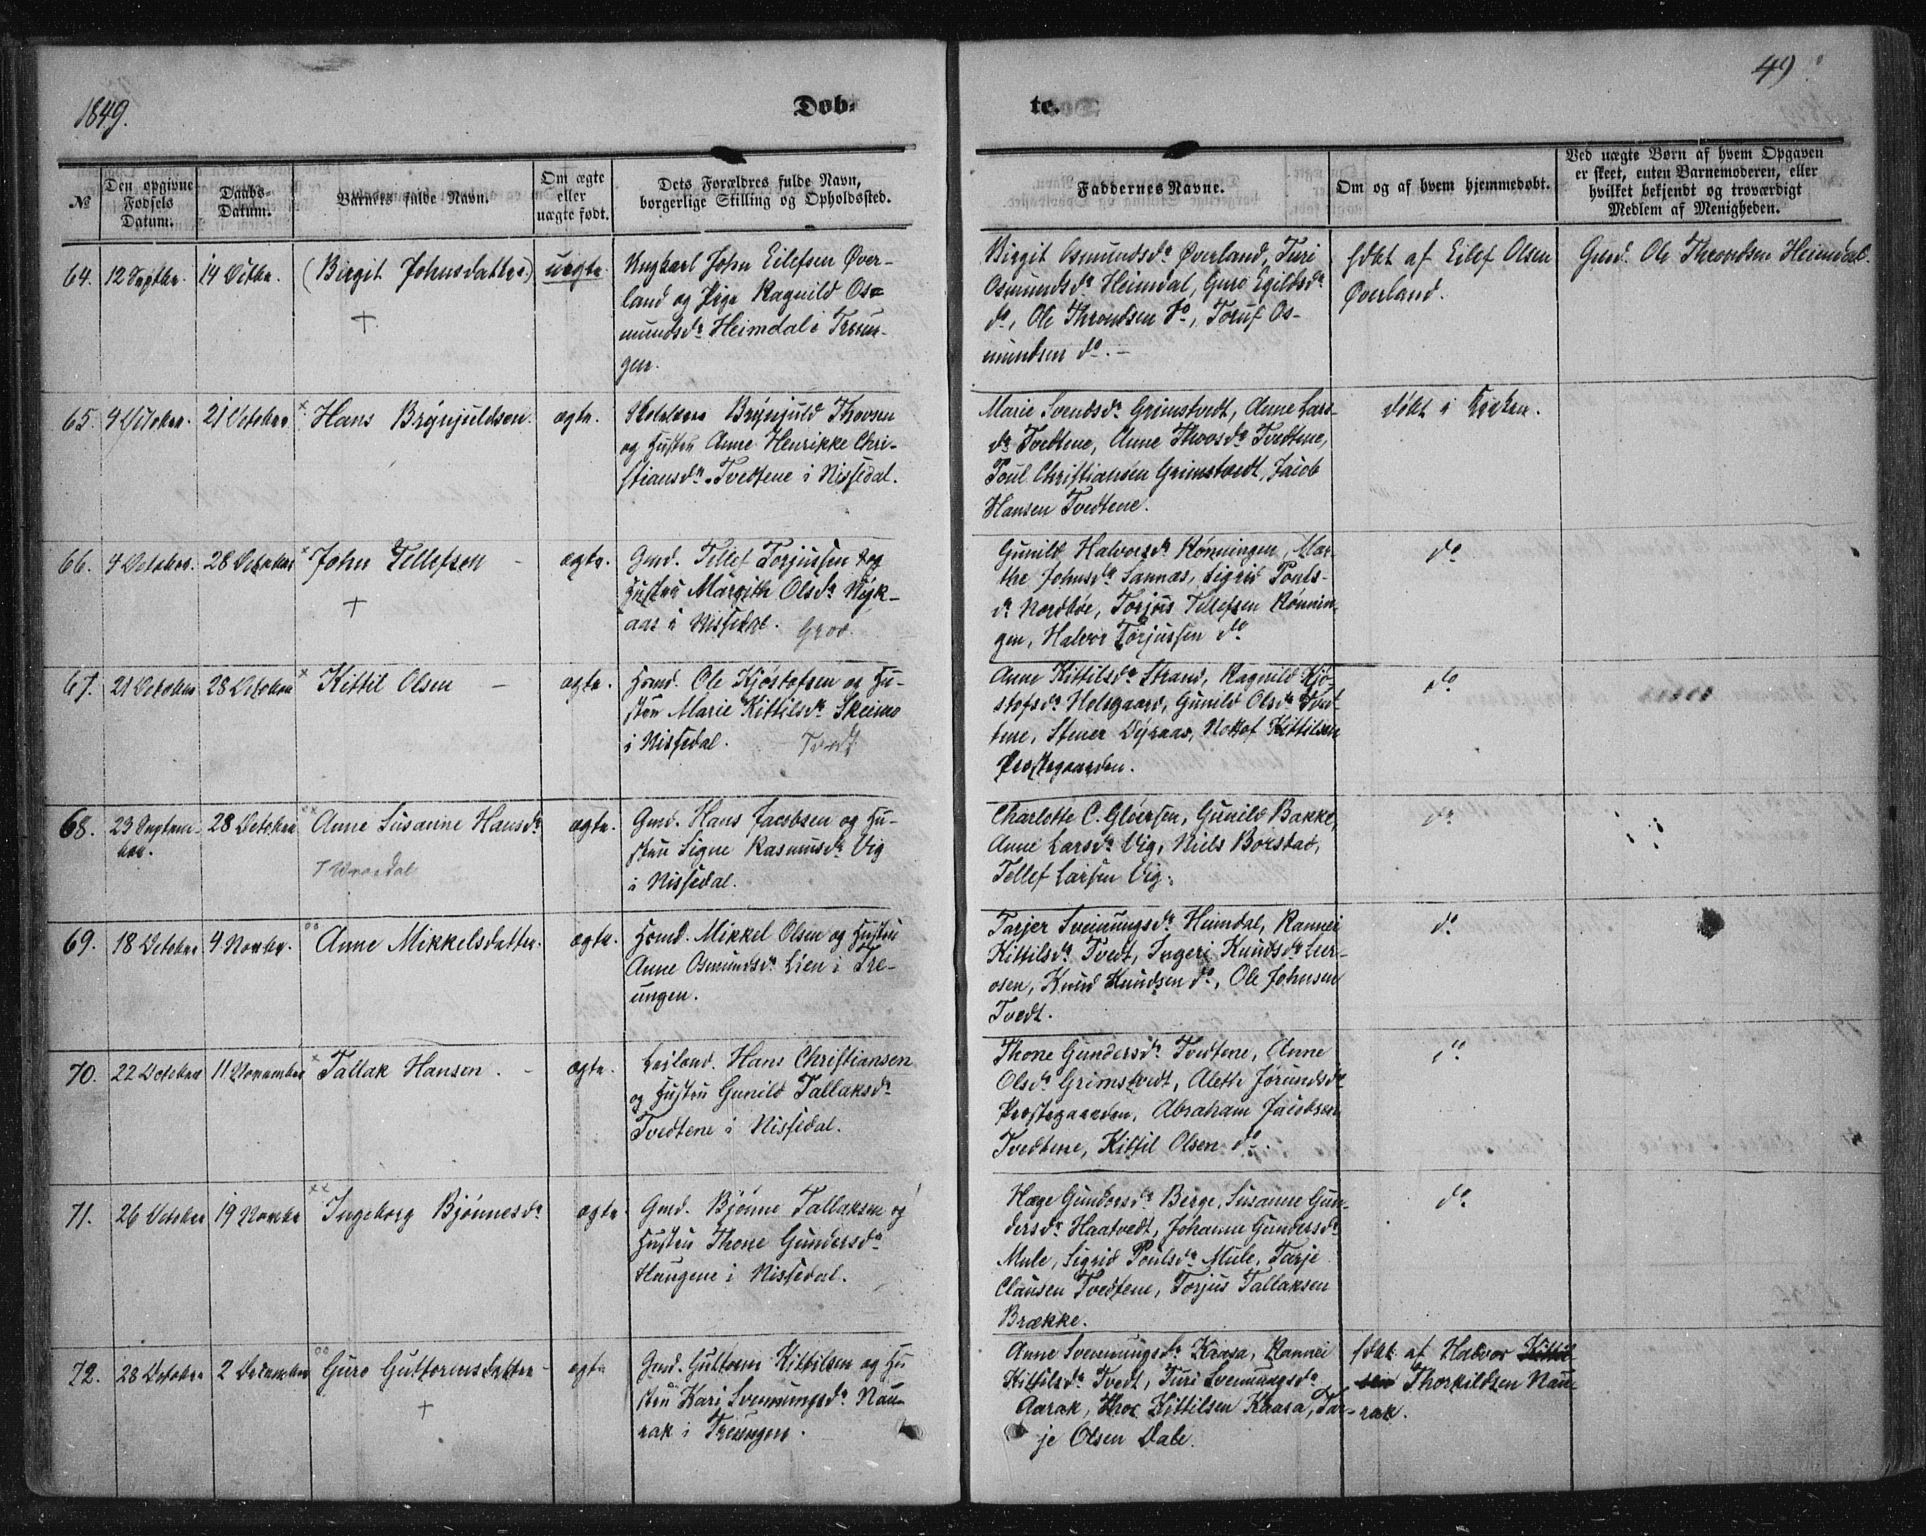 1849.
Døb-
te.
49
No
Den opgivne
Fødsels
Datum.
Daabs-
Datum.
Barnets fulde Navn.
Om ægte
eller
uægte født.
Dets Forældres fulde Navn,
borgerlige Stilling og Opholdssted.
Faddernes Navne.
Om og af hvem hjemmedøbt.
Ved uægte Børn af hvem Opgaven
er skeet, enten Barnemoderen, eller
hvilket bekjendt og troværdigt
Medlem af Menigheden.
64. 12 Septbr. 14 Octbr. (Birgit Johnsdatter) uægte.
Ungkarl John Eilefsen Øver-
land og Pige Ragnild Os-
mundsdr Heimdal i Treun-
gen.
Birgit Osmundsdr Øverland, Turi
Osmundsdr Heimdal, Guro Egildsdr
do, Ole Throndsen do, Toruf Os-
mundsen do. -
hdbt af Eilef Olsen
Øverland.
Gmd. Ole Throndsen Heimdal.
65. 4 October. 21 October × Hans Brynjuldsen. ægte.
Brynjuld Thorsen
og Hustru Anne Henrikke Chri-
stiansdr. Tvedtene i Nissedal.
Marie Svendsdr Grimstvedt, Anne Lars-
dr Tvedtene, Anne Thorsdr Tvedtene,
Poul Christiansen Grimstvedt, Jacob
Hansen Tvedtene.
døbt i Kirken.
66. 4 October. 28 October × John Tellefsen - ægte.
Gmd. Tellef Torjussen og
Hustru Margith Olsdr Nyk-
aas i Nissedal. Grov.
Gunild Halvorsdr Rønningen, Mar-
the Johnsdr Sannæs, Sigrid Pouls-
dr Nordbøe, Torjus Tellefsen Rønnin-
gen, Halvor Torjussen do
do
67. 21 October 28 October × Kittil Olsen - ægte.
Hsmd. Ole Kjøstofsen og Hu-
stru Marie Kittilsdr Skeimo
i Nissedal. Tvedt
Anne Kittilsdr Strand, Ragnild Kjø-
stofsdr Holsgaard, Gunild Olsdr Tved-
tene, Stener Dyraas, Nottof Kittilsen
Præstegaarden.
do
68. 23 Septem-
ber. 28 October ×× Anne Susanne Hansdr ægte.
Gmd. Hans Jacobsen og Hu-
stru Signe Rasmusdr Vig
i Nissedal.
Charlotte C. Gløersen, Gunild Bakke,
Anne Larsdr Vig, Niels Borstad,
Tellef Larsen Vig.
do
69. 18 October 4 Novbr. °° Anne Mikkelsdatter. ægte.
Hsmd. Mikkel Olsen og Hustru
Anne Osmundsdr Lien i Tre-
ungen.
Tarjer Svenungsdr Heimdal, Rannei
Kittilsdr Tvedt, Ingeri Knudsdr Lur-
osen, Knud Knudsen do, Ole Johnsen
Tvedt.
do
70. 22 October 11 November × Tallak Hansen. - ægte.
Leilænd. Hans Christiansen
og Hustru Gunild Tallaksdr
Tvedtene i Nissedal.
Thone Gundersdr Tvedtene, Anne
Olsdr Grimstvedt, Aleth Jørundsdr
Præstegaarden, Abraham Jacobsen
Tvedtene, Kittil Olsen do.
do
71. 26 October 19 Novbr ×× Ingeborg Bjønnesdr ægte.
Gmd. Bjønne Tallaksen og
Hustru Thone Gundersdr
Haugene i Nissedal.
Hæge Gundersdr Berge, Susanne Gun-
dersdr Haatvedt, Johanne Gundersdr
Mule, Sigrid Poulsdr Mule, Tarje
Clausen Tvedtene, Torjus Tallaksen
Brække.
do
72. 28 October 2 December °° Guro Guttormsdatter - ægte
Gmd. Guttorm Kittilsen og Hu-
stru Kari Svennungsdr Nau-
rak i Treungen.
Anne Svennungsdr Kraasa, Rannei
Kittilsdr Tvedt, Turi Svennungsdr
Aarak, Kittilsen Kaasa, Tar-
je Olsen Dale.
hdbt af Halvor Kittil-
sen Thorkildsen Nau-
rak.